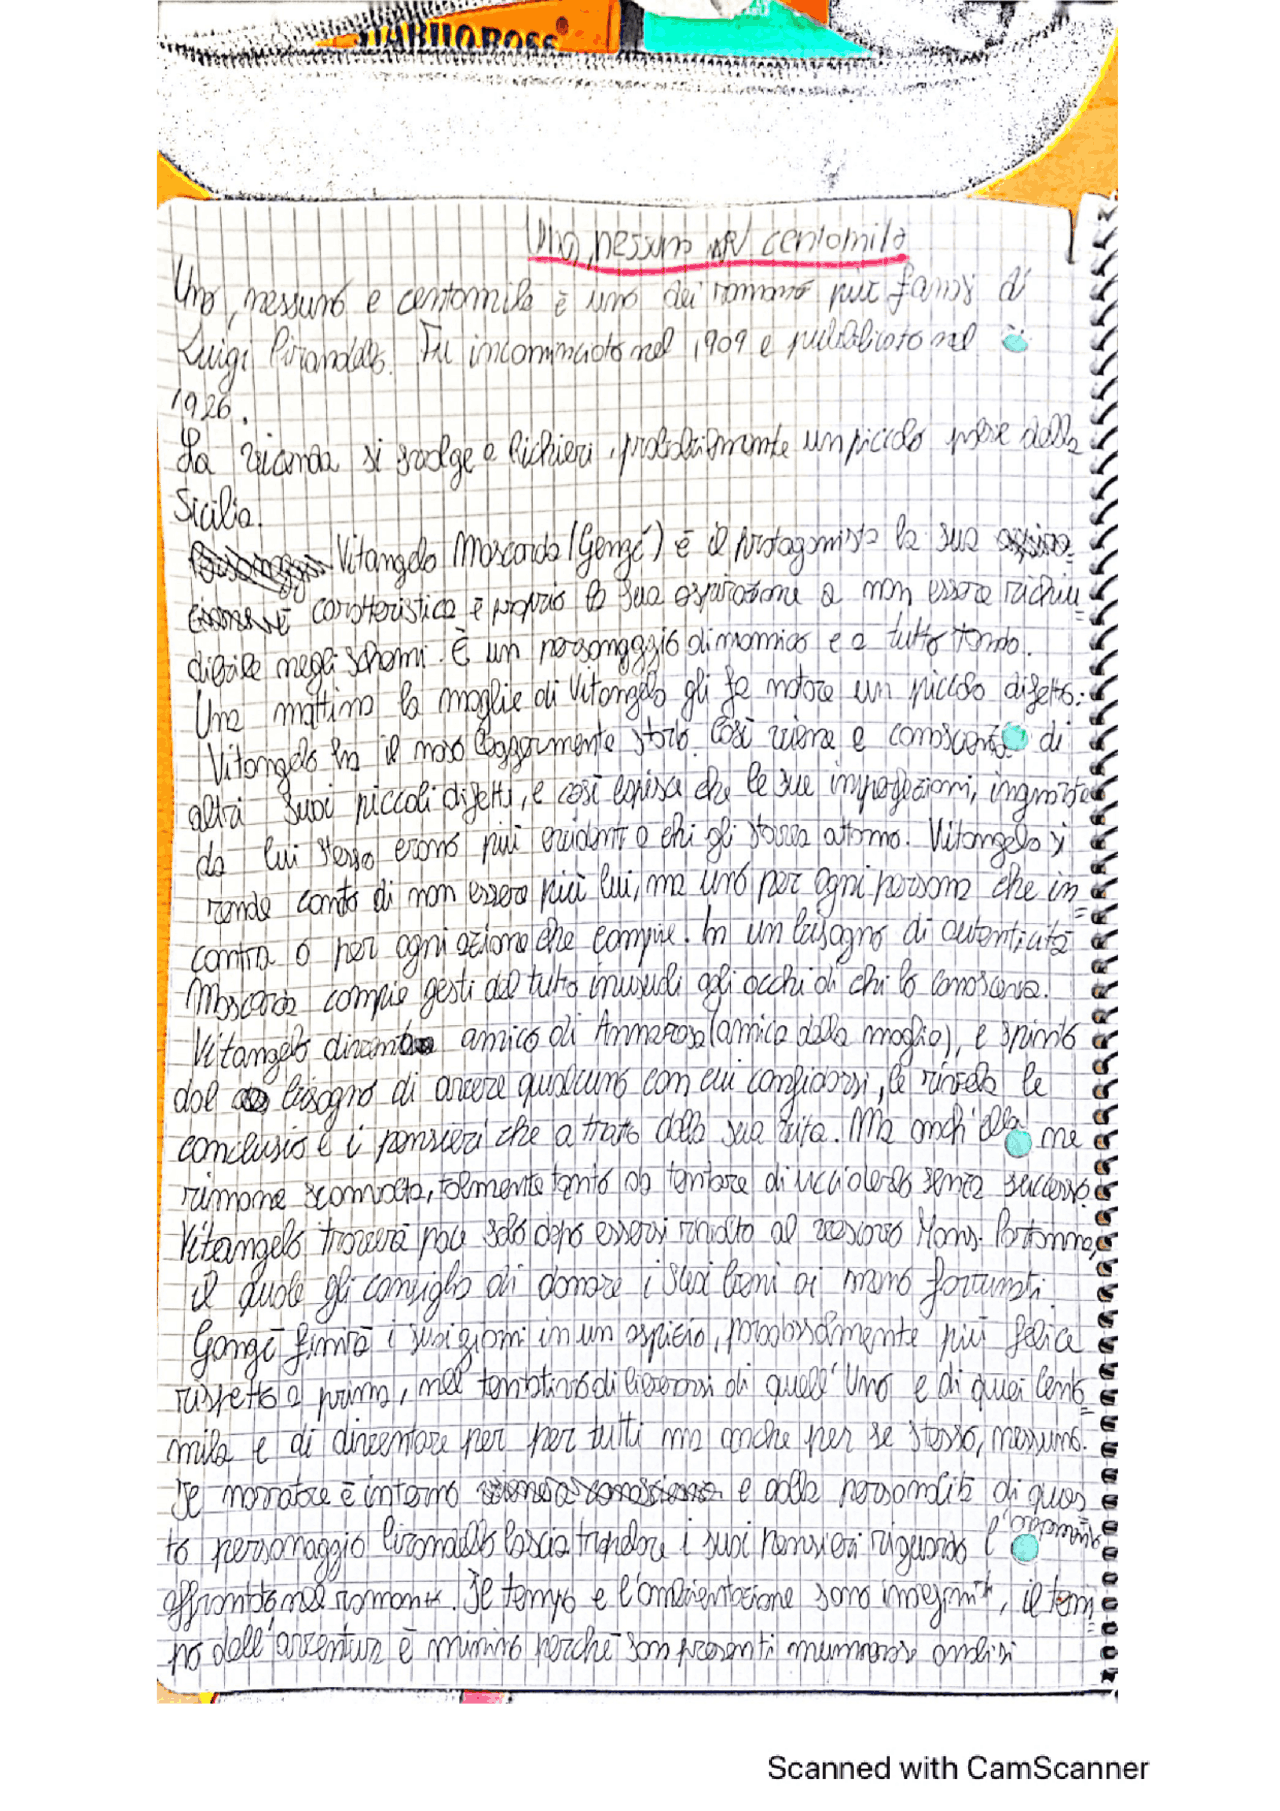 Uno, nessuno e centomila
Uno, nessuno e centomila è uno dei romanzi più famosi di
Luigi Pirandello. Fu incominciato nel 1909 e pubblicato nel
1926.
La vicenda si svolge a Richieri, probabilmente un piccolo paese della
Sicilia.
Vitangelo Moscarda (Gengé) è il protagonista la sua
caratteristica è proprio la sua aspirazione a non essere riconu
dibile negli schemi. È un personaggio dinamico e a tutto tondo.
Una mattina la moglie di Vitangelo gli fa notare un piccolo difetto:
Vitangelo ha il naso leggermente storto. Così viene a conoscenza di
altri suoi piccoli difetti, e così capisce che le sue imperfezioni, ingnorate
da lui stesso erano più evidenti a chi gli stava attorno. Vitangelo si
rende conto di non essere più lui, ma uno per ogni persona che in=
contra o per ogni azione che compie. In un bisogno di autenticità
Moscarda compie gesti del tutto inusuali agli occhi di chi lo conosceva.
Vitangelo diventa amico di Annarosa (amica della moglie), e spinto
dal bisogno di avere qualcuno con cui confidarsi, le rivela le
conclusio e i pensieri che a tratto dalla sua vita. Ma anch'ella ne
rimane sconvolta, talmente tanto da tentare di ucciderlo senza successo.
Vitangelo troverà pace solo dopo essersi rivolto al vescovo Mons. Partanna,
il quale gli consiglia di donare i suoi beni ai meno fortunati.
Gengè finirà i suoi giorni in un ospizio, paradossalmente più felice
rispetto a prima, nel tentativo di liberarsi di quell'Uno e di quei Cento=
mila e di diventare per per tutti ma anche per se stesso, nessuno.
Il narratore è interno e dalla personalità di ques
to personaggio Pirandello lascia trapelare i suoi pensieri riguardo l'argomento
affrontato nel romanzo. Il tempo e l'ambientazione sono, il tem=
po dell'avventura è minimo perché son presenti numerose analisi
Scanned with CamScanner